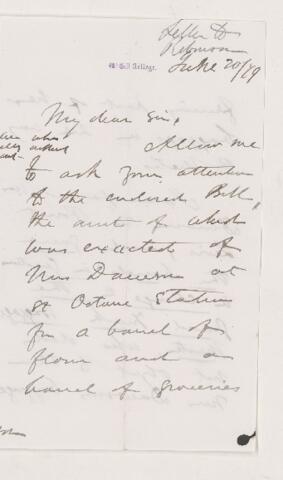 Letter to
June 20/79
McGill College.
My dear Sir,
Allow me
to ask your attention
to the enclosed Bill,
the amt of which
was exacted of
Mrs Dawson at
St Octave Station
for a barrel of
flour and a
barrel of groceries